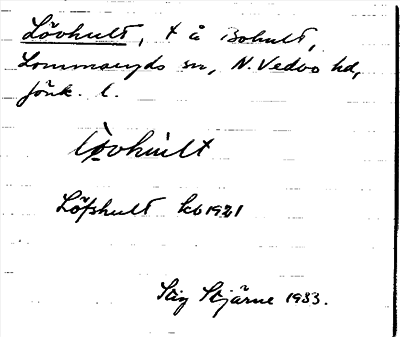 Lövhult, t å Bohult,
Lommaryds sn, N. Vedbo hd,
Jönk. l.
Lövhult
Löfshult kb 1921
Stig Stjärne 1933.